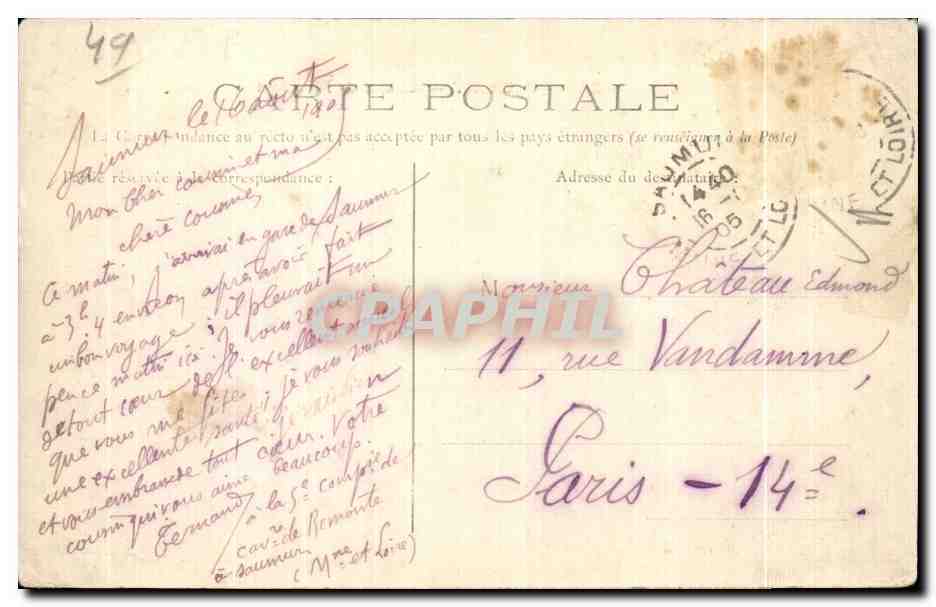 49
CARTE POSTALE
La Correspondance au recto n'est pas acceptée par tous les pays étrangers (se renseigner à la Poste)
Partie réservée à la correspondance :
Adresse du destinataire
Saumur le 16 août
Mon cher cousin et ma
chère cousine,
Ce matin, j'arrivai en gare de Saumur
à 3h ¼ environ après avoir fait
un bon voyage ; il pleuvait un
peu ce matin ici. Je vous remercie
de tout cœur de l'excellent
que vous me fîtes ; je vous souhaite
une excellente santé
et vous embrasse de tout cœur. Votre
cousin qui vous aime beaucoup.
Fernand
à la 5e compie de
cavrie de Remonte
à Saumur
(Mne et Loire)
SAUMUR
1440
16
05
ET LOIRE
Monsieur Château Edmond
11, rue Vandamme,
Paris - 14e.
CPAPHIL